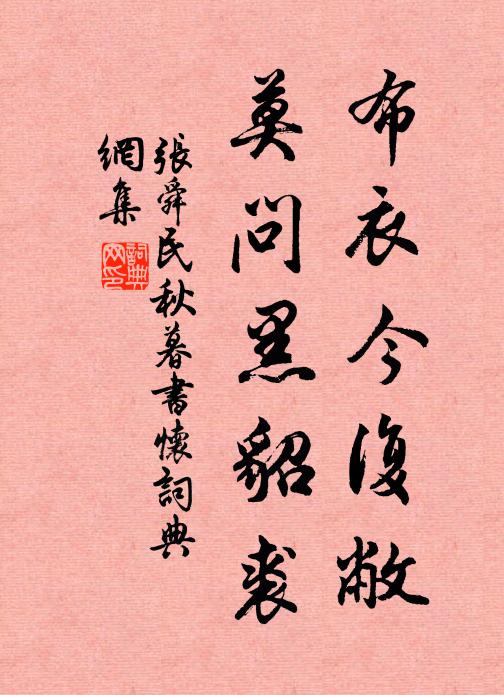 布衣今復敝
莫問黑貂裘
張舜民秋暮書懷詞典
網集
詞典網印